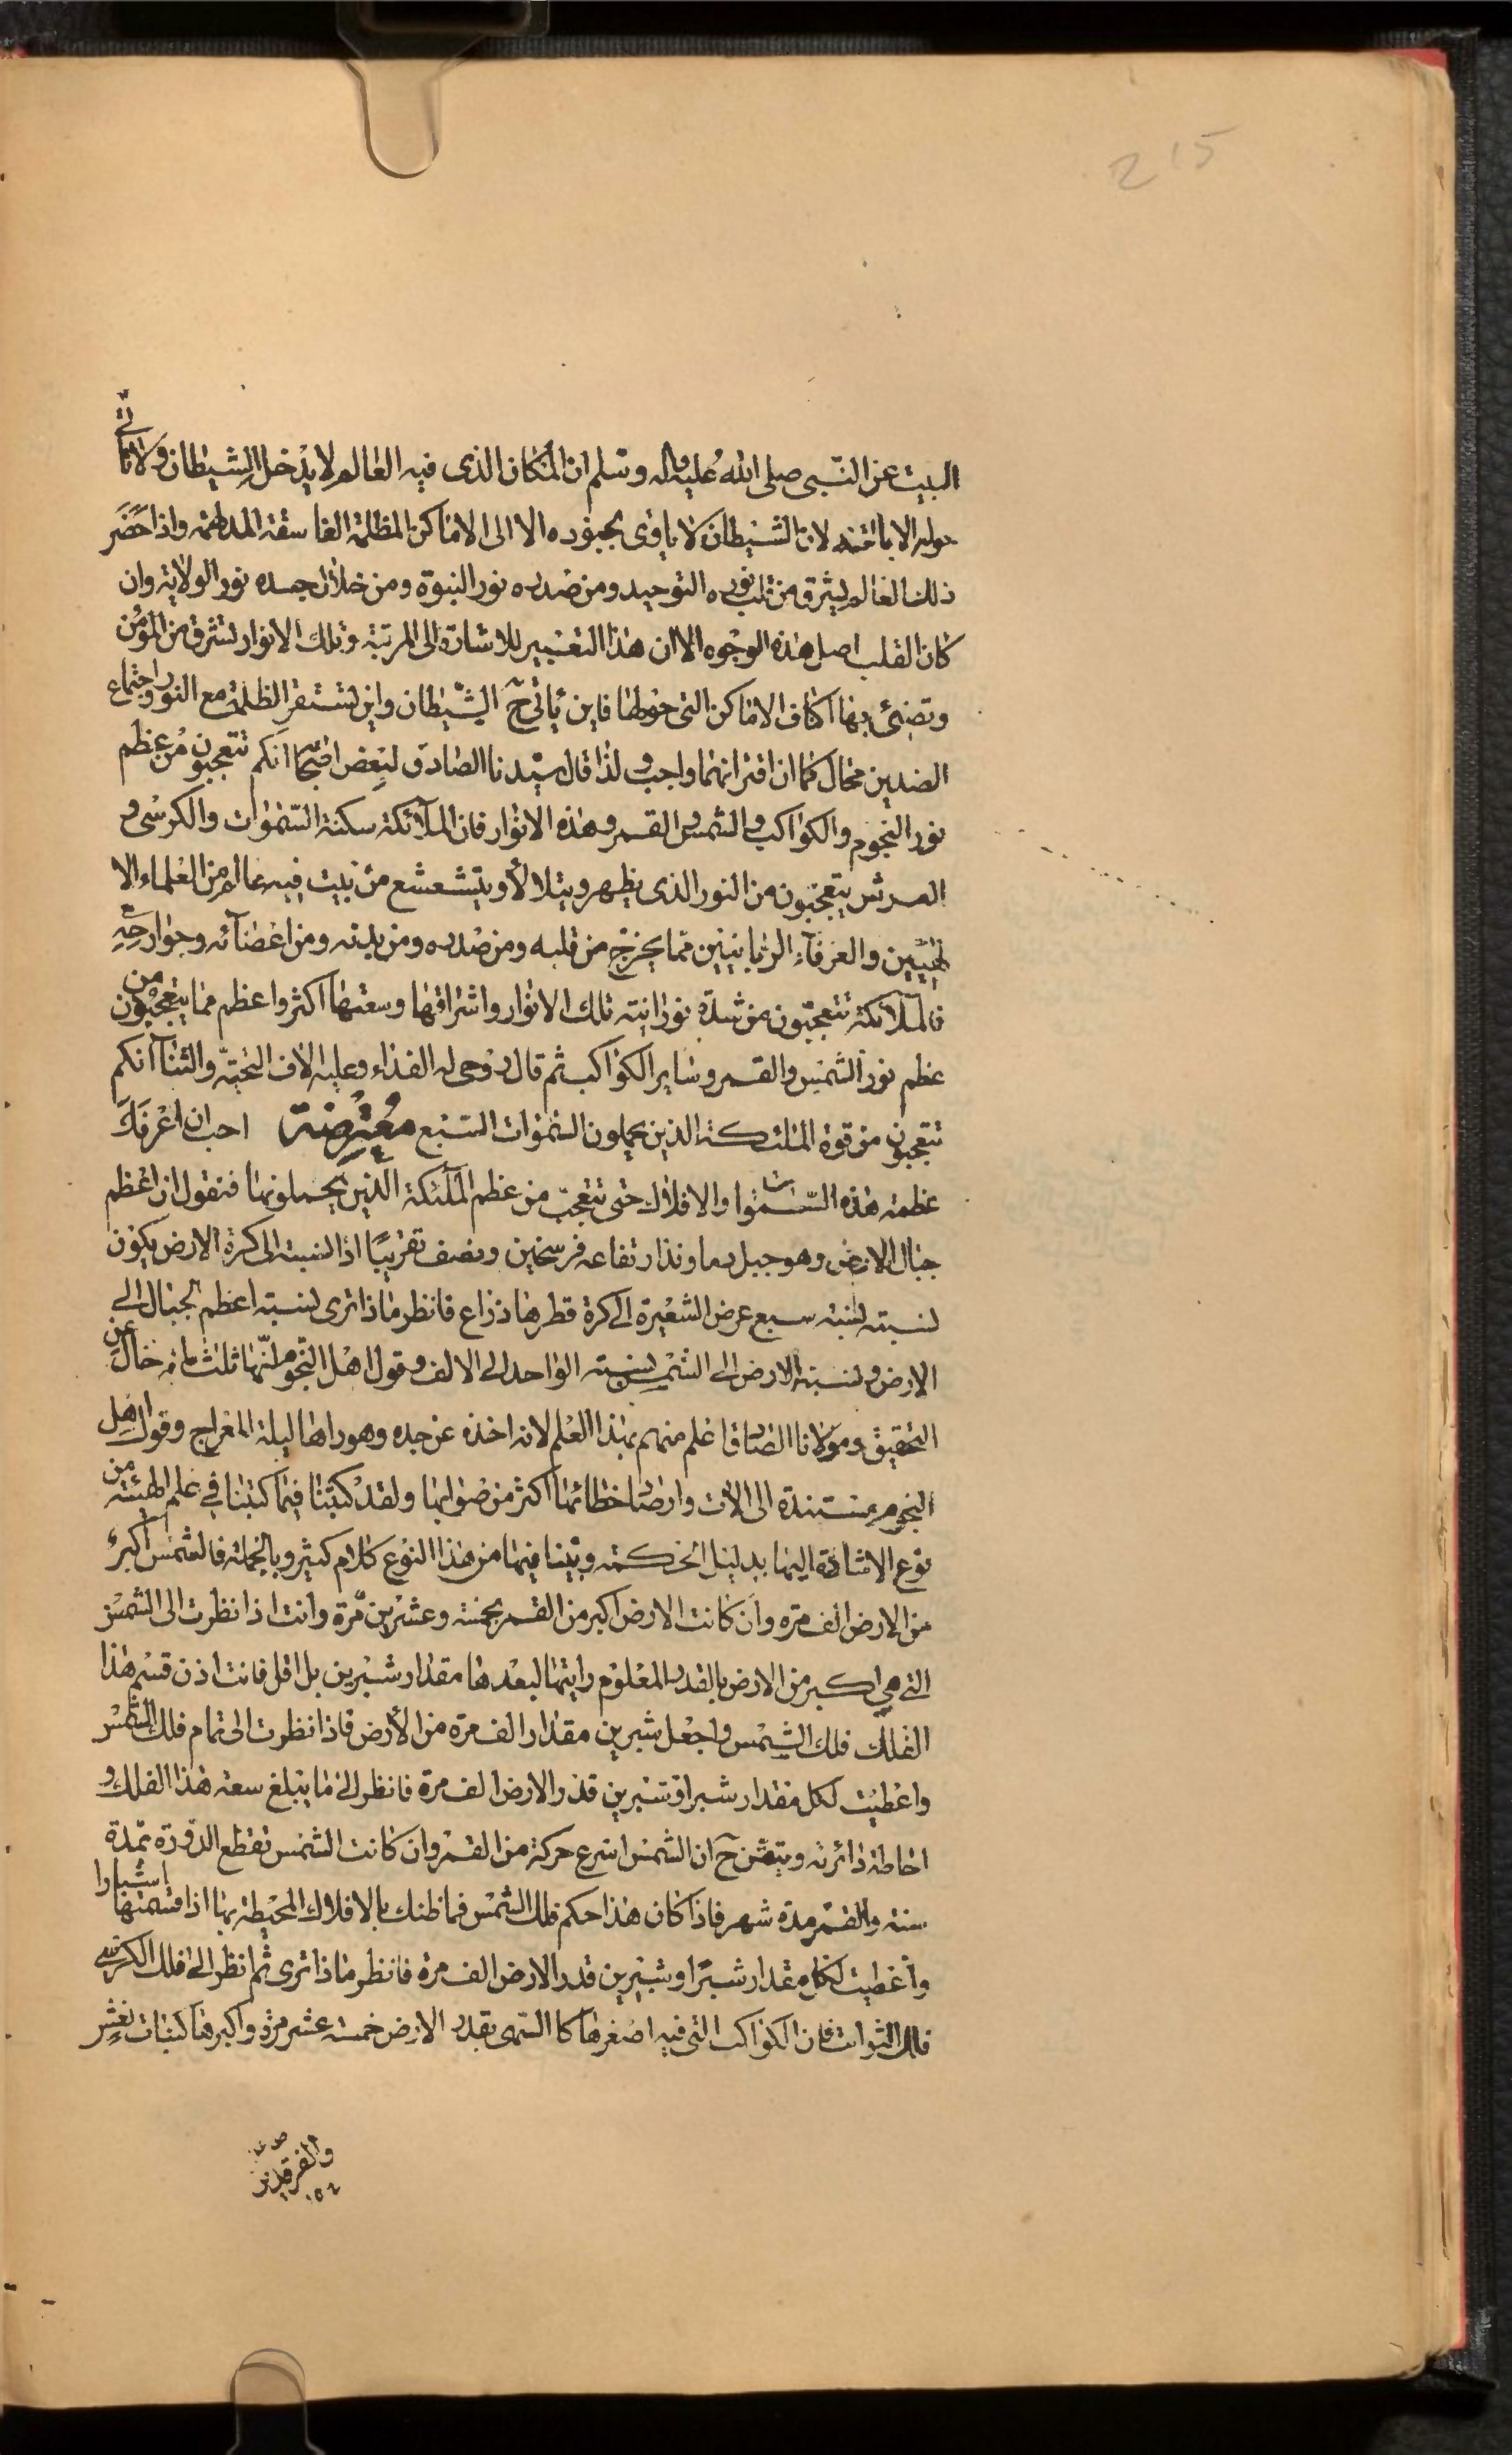 215
البيت عن النبى صلى الله عليه واله وسلم ان المكان الذى فيه العالم لا يدخل الشيطان ولا ياتى
حوله الا لان الشيطان لا ياوى بجنوده الا الى الاماكن المظلمة الغاسقة المدلهمة واذا حضر
ذلك العالم ليشرق من قلبه نور التوحيد ومن صدره نور النبوة ومن خلال جسده نور الولاية وان
كان القلب اصل هذه الوجوه الا ان هذا التعبير للاشارة الى المرتبة وتلك الانوار لتشرق من المؤمن
وتضئ بها اكناف الاماكن التى حولها فاين ياتى ح الشيطان واين تستقر الظلمة مع النور واجتماع
الضدين محال كما ان افترانهما واجب ولذا قال سيدنا الصادق لبعض اصحا انكم تتعجبون من عظم
نور النجوم والكواكب والشمس والقمر وهذه الانوار فان الملآئكة سكنة السموات والكرسى و
العرش يتعجبون من النور الذى يظهر ويتلالأ ويتشعشع من بيت فيه عالم من العلماء الا
لهيين والعرفآء الربانيين مما يخرج من قلبه ومن صدره ومن بدنه ومن اعضآئه وجوارحه
فالملآئكة تتعجبون من شدة نورانية تلك الانوار واشراقها وسعتها اكثر واعظم مما يتعجبون من
عظم نور الشمس والقمر وساير الكواكب ثم قال روحى له الفداء وعليه الاف التحية والثنآ انكم
تتعجبون من قوة الملئكة الذين يحملون السموات السبع معترضة احب ان اعرفك
عظمة هذه السموات والافلاك حتى تتعجب من عظم الملئكة الذين يحملونها فنقول ان اعظم
جبال الارض وهو جبل دماوند ارتفاعه فرسخين ونصف تقريبًا اذا لنسبة الى كرة الارض يكون
نسبته نسبة سبع عرض الشعيرة الى كرة قطرها ذراع فانظر ماذا ترى نسبة اعظم الجبال الى
الارض ونسبة الارض الى الشمس نسبة الواحد الى الالف وقول اهل النجوم انها ثلث مائة خال عن
التحقيق ومولانا الصادق اعلم منهم بهذا العلم لانه اخذه عن جده وهو راها ليلة المعراج وقول اهل
النجوم مستندة الى الات وارصاد خطائها اكثر من صوابها ولقد كتبنا فيما كتبنا فى علم الهيئة من
نوع الاشارة اليها بدليل الحكمة وبينا فيها من هذا النوع كلام كثير وبالجملة فالشمس اكبر
من الارض الف مرة وان كانت الارض اكبر من القمر بخمسة وعشرين مرة وانت اذا نظرت الى الشمس
التى هى اكبر من الارض بالقدر المعلوم رايتها لبعدها مقدار شبرين بل اقل فانت اذن قسم هذا
الفلك فلك الشمس واجعل شبرين مقدار الف مرة من الأرض فاذا نظرت الى تمام فلك الشمس
واعطيت لكل مقدار شبر او شبرين قدر الارض الف مرة فانظر الى ما يبلغ سعة هذا الفلك و
احاطة دائرته ويتبين ح ان الشمس اسرع حركة من القمر وان كانت الشمس تقطع الدورة بمدة
سنة والقمر مدة شهر فاذا كان هذا حكم فلك الشمس فما ظنك بالافلاك المحيطة بها اذا قسمتها اشبارا
واعطيت لكل مقدار شبرًا وشبرين قدر الارض الف مرة فانظر ماذا ترى ثم انظر الى فلك الكرسى
فلك الثوابت فان الكواكب التى فيه اصغرها كا السهى بقدر الارض خمسة عشر مرة واكبرها كبنات نعش
والفرقدين